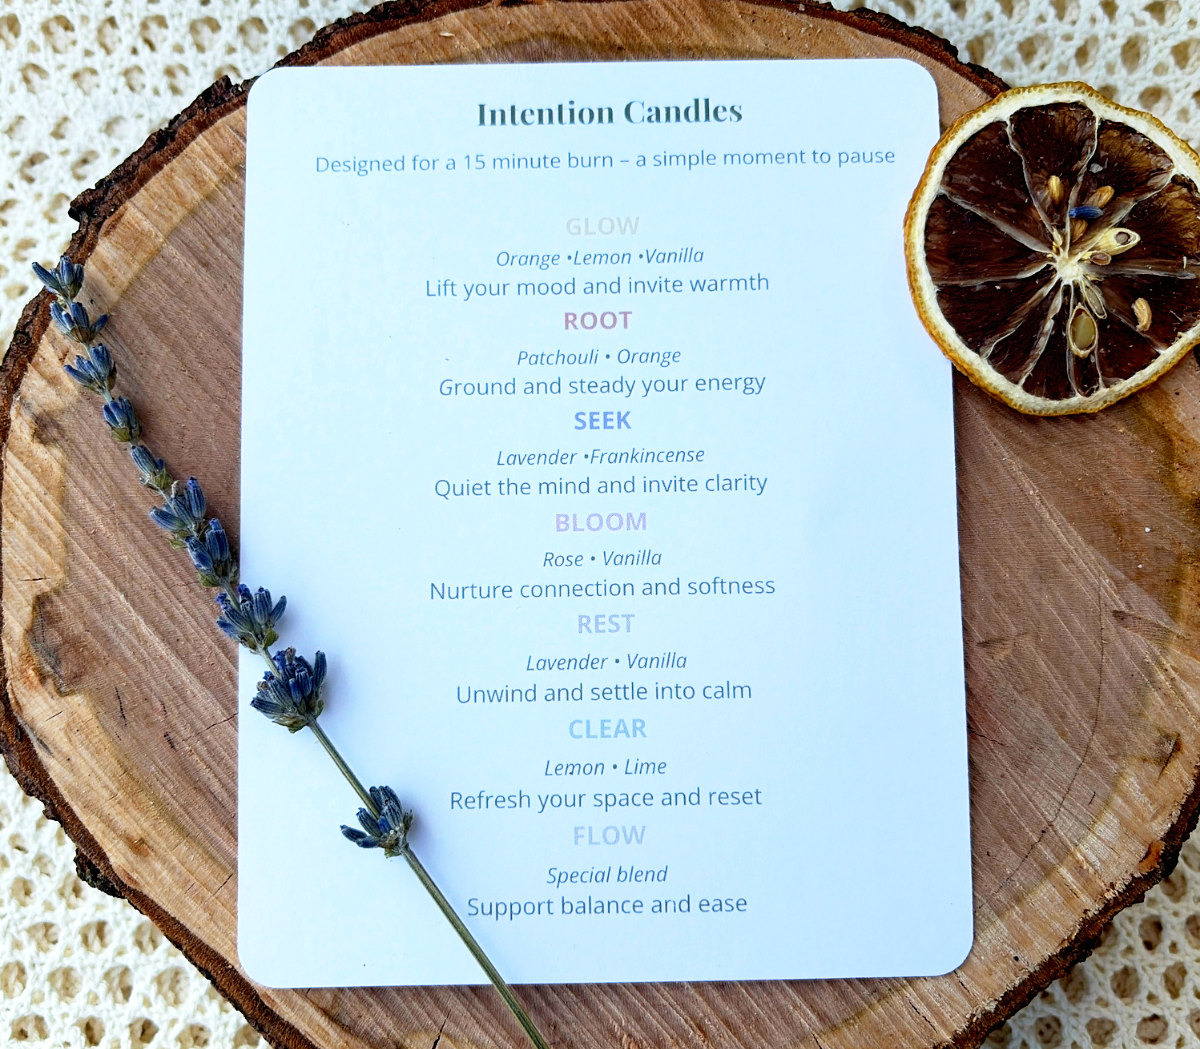 Intention Candles
Designed for a 15 minute burn – a simple moment to pause
GLOW
Orange •Lemon •Vanilla
Lift your mood and invite warmth
ROOT
Patchouli • Orange
Ground and steady your energy
SEEK
Lavender •Frankincense
Quiet the mind and invite clarity
BLOOM
Rose • Vanilla
Nurture connection and softness
REST
Lavender • Vanilla
Unwind and settle into calm
CLEAR
Lemon • Lime
Refresh your space and reset
FLOW
Special blend
Support balance and ease